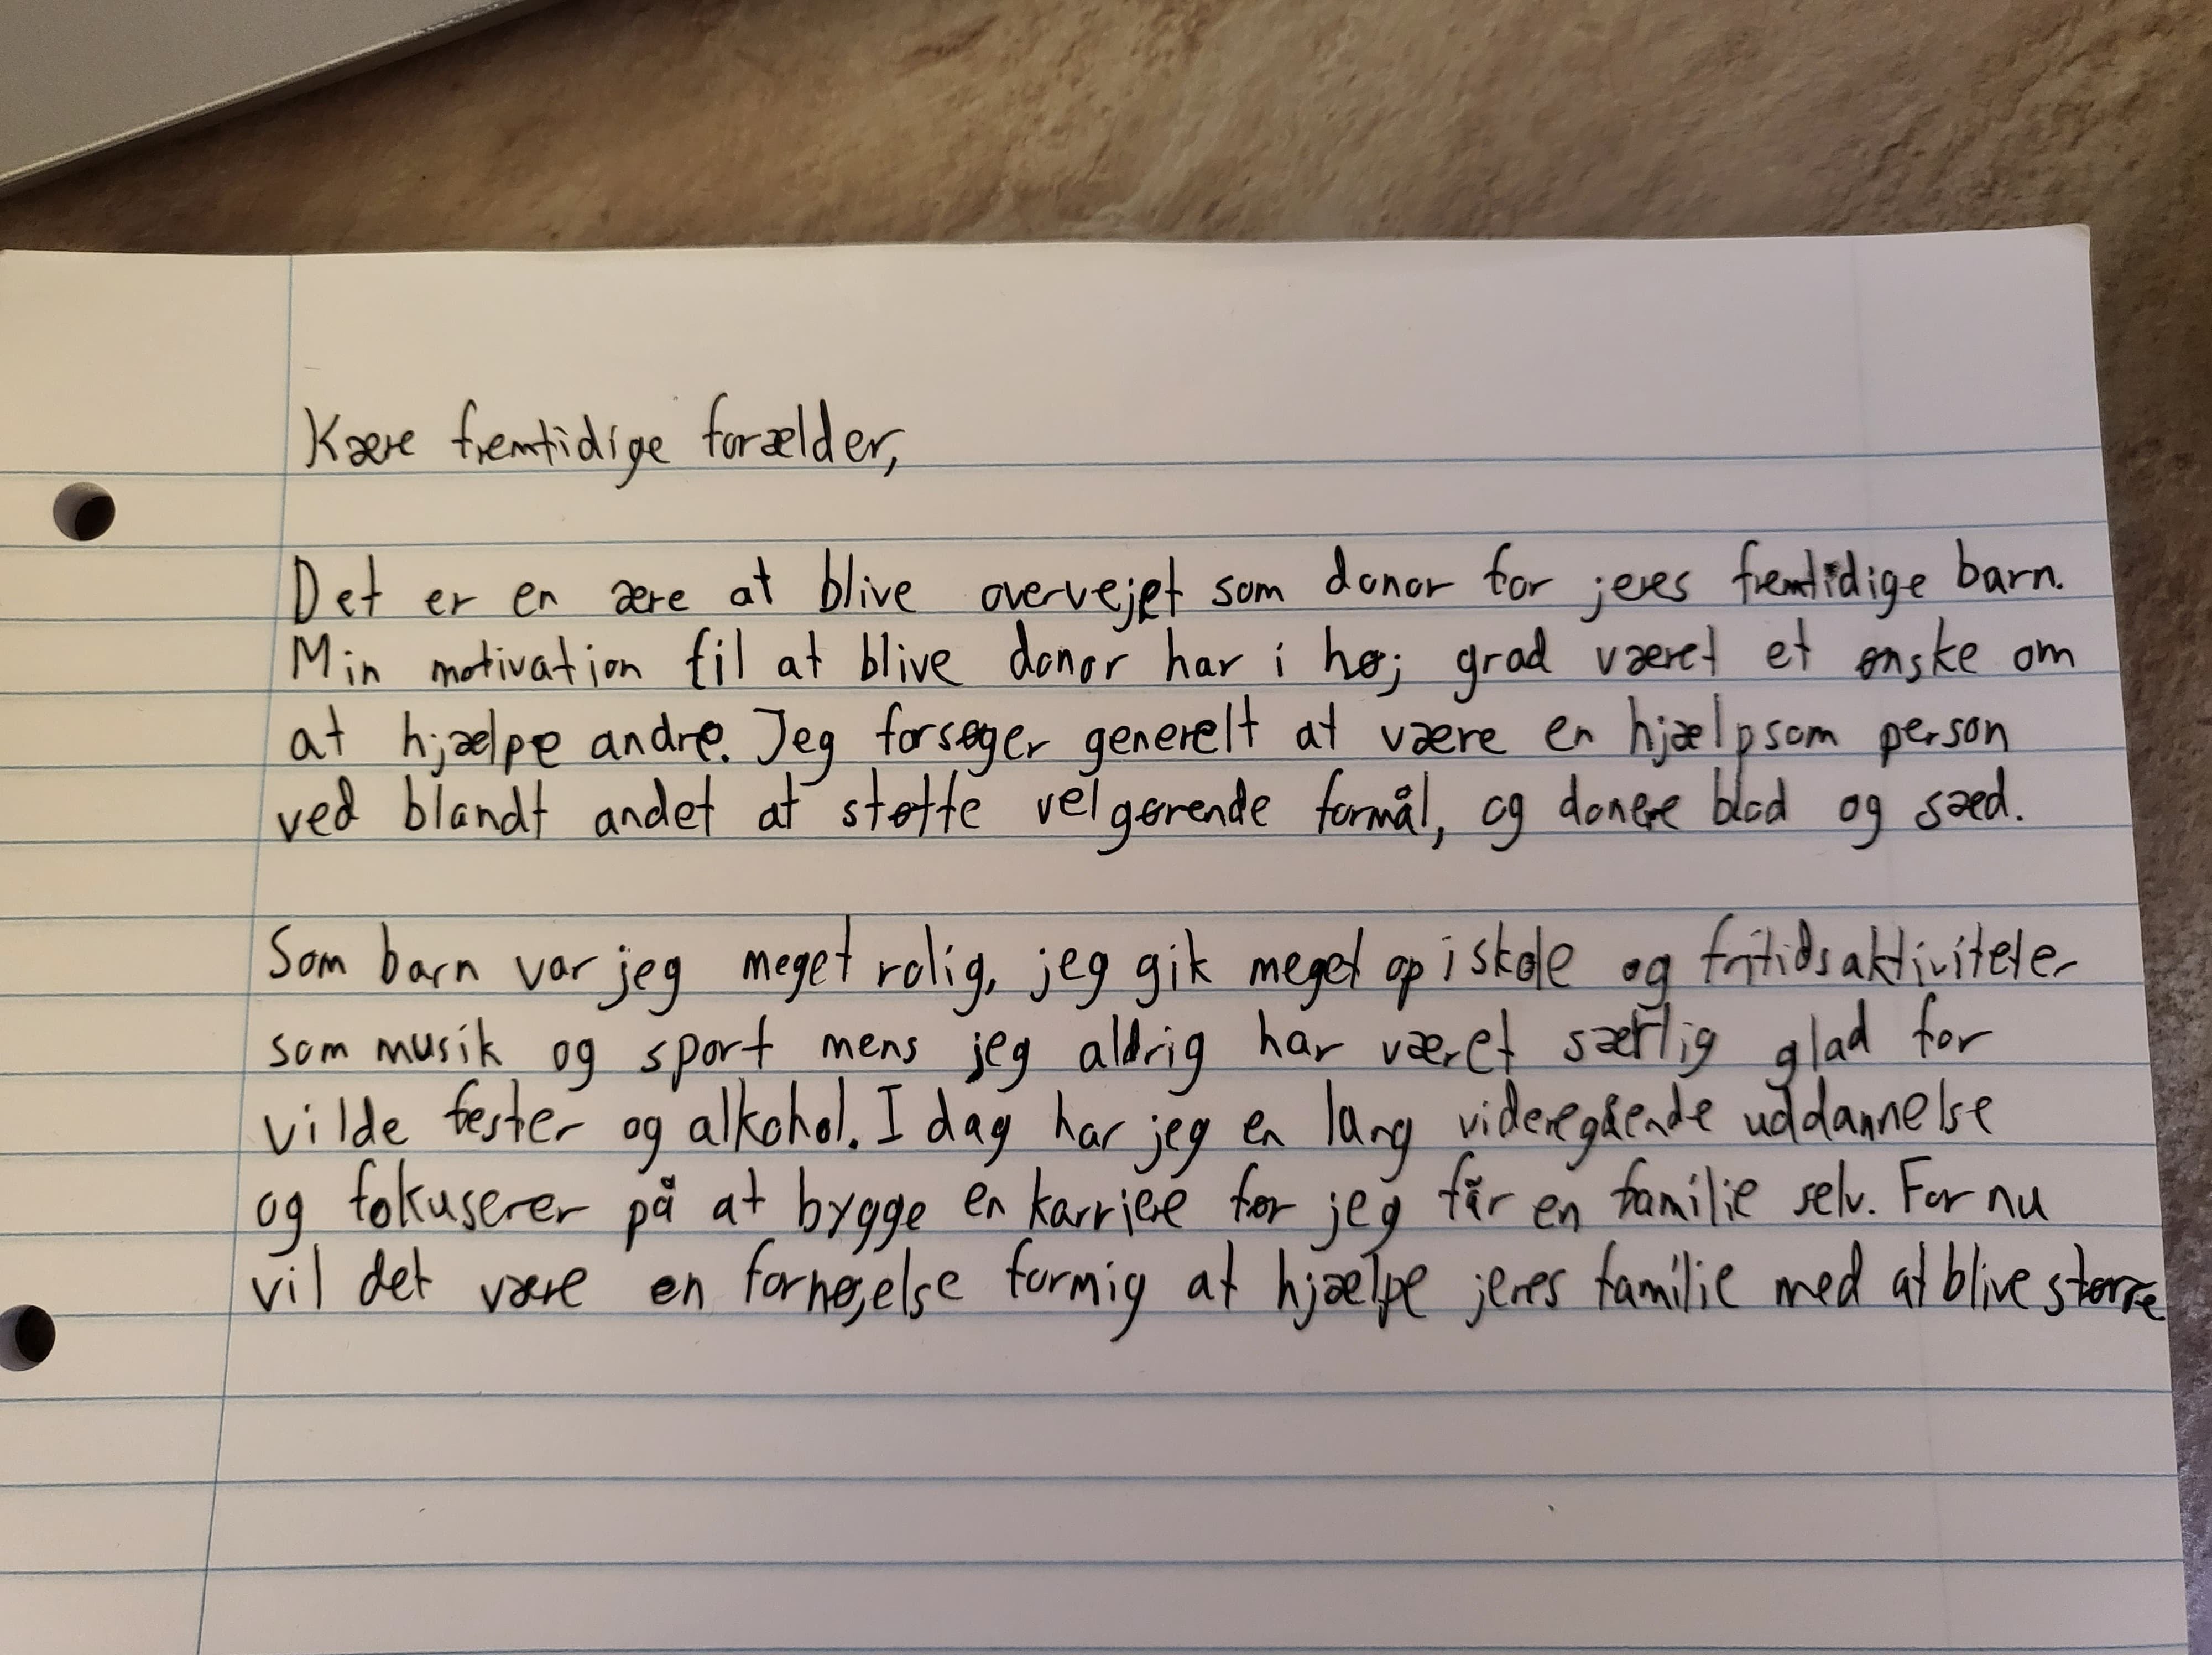 Kære fremtidige forælder,
Det er en ære at blive overvejet som donor for jeres fremtidige barn.
Min motivation til at blive donor har i høj grad været et ønske om
at hjælpe andre. Jeg forsøger generelt at være en hjælpsom person
ved blandt andet at støtte velgørende formål, og donere blod og sæd.
Som barn var jeg meget rolig, jeg gik meget op i skole og fritidsaktiviteter
som musik og sport mens jeg aldrig har været særlig glad for
vilde fester og alkohol. I dag har jeg en lang videregående uddannelse
og fokuserer på at bygge en karriere før jeg får en familie selv. For nu
vil det være en fornøjelse for mig at hjælpe jeres familie med at blive større